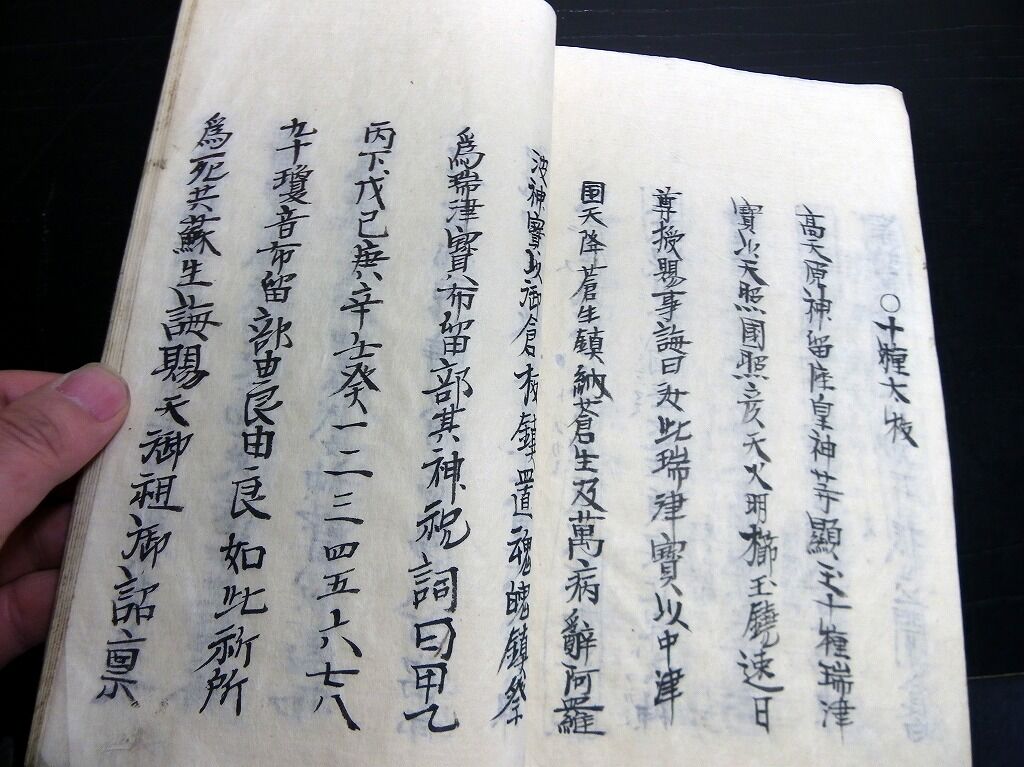 ○十種大祓
高天原神留座皇神等顯玉十種瑞津
寳以天照國照彦天火明櫛玉饒速日
尊授賜事誨曰汝此瑞津寳以中津
国天降蒼生鎮納蒼生及萬病辭阿羅
波神寳以御倉板鎮置魂魄鎮祭
爲瑞津寳布留部其神祝詞曰甲乙
丙丁戊己庚辛壬癸一二三四五六七八
九十瓊音布留部由良由良如此祈所
爲死共蘇生誨賜天御祖御詔稟